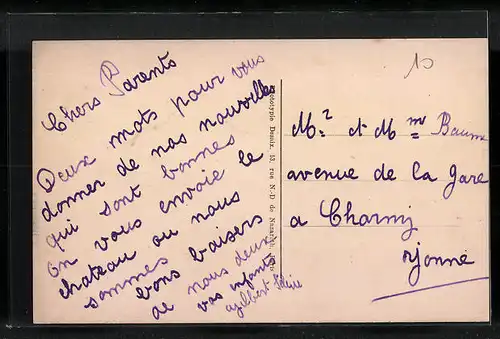 Chers Parents
Deux mots pour vous
donner de nos nouvelles
qui sont bonnes
on vous envoie le
chateau ou nous
sommes
bons baisers
de nous deux
vos enfants
gilbert
Phototypie Desaix, 13, rue N.-D de Nazareth, Paris
M.r et M.me Baum
avenue de la Gare
a Charny
Yonne